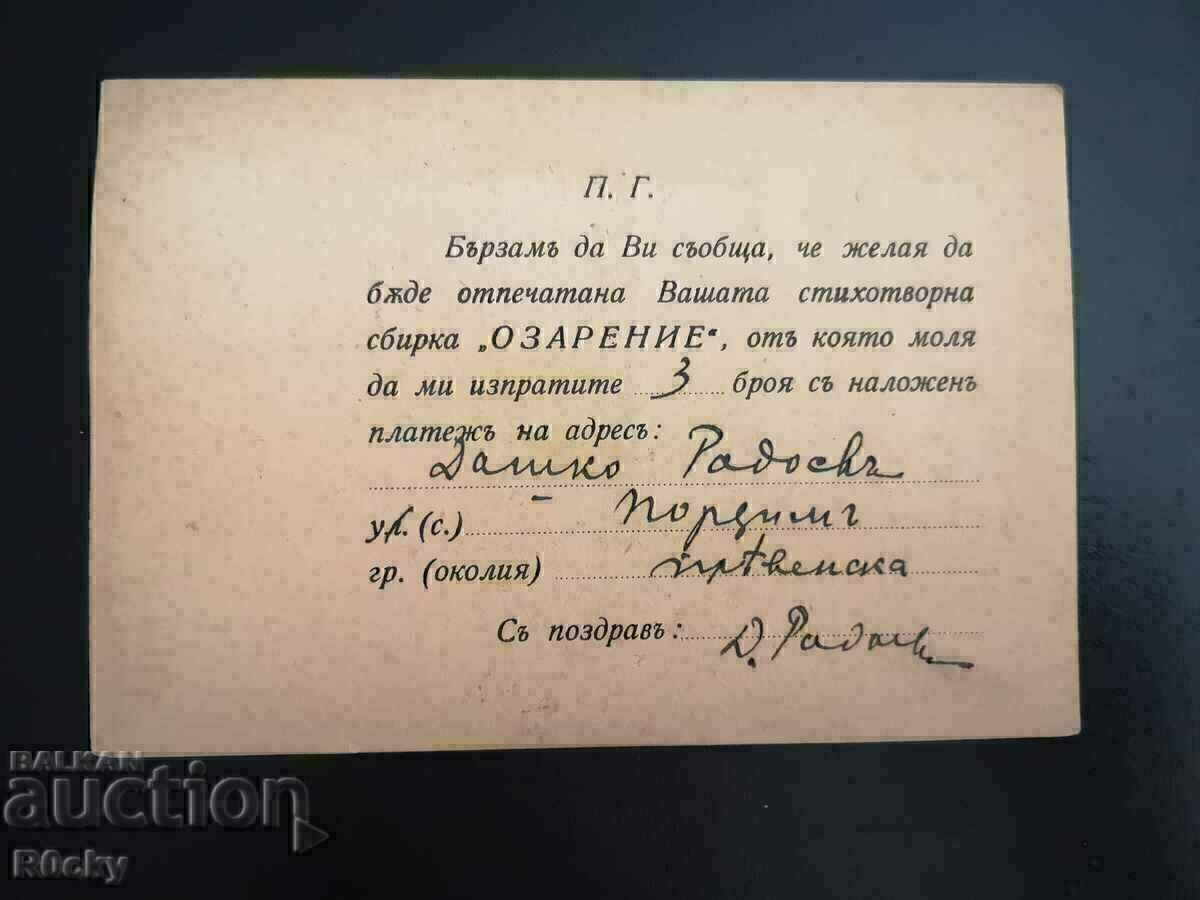 П. Г.
Бързамъ да Ви съобща, че желая да
бѫде отпечатана Вашата стихотворна
сбирка „ОЗАРЕНИЕ“, отъ която моля
да ми изпратите 3 броя съ наложенъ
платежъ на адресъ:
Дашко Радоевъ
ул. (с.) Пордимъ
гр. (околия) плѣвенска
Съ поздравъ: Д. Радоевъ
BALKAN
auction
R0cky